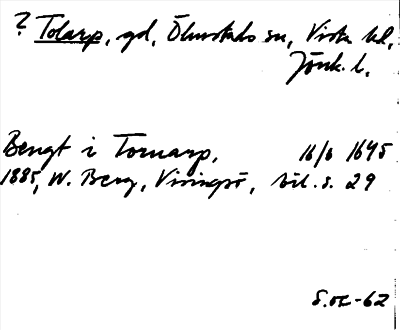 ? Tolarp, gd, Ölmstads sn, Vista hd,
Jönk. l.
Bengt i Tornarp, 16/6 1645
1885, W. Berg, Visingsö, bil. s. 29
S.oE-62